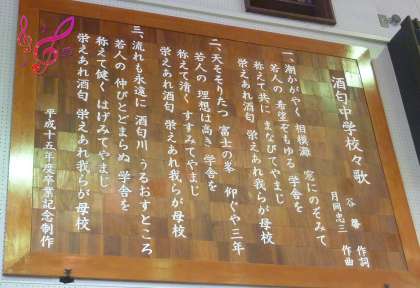 酒匂中学校々歌
谷馨 作詞
月岡忠三 作曲
一、潮かがやく 相模灘 窓にのぞみて
若人の 希望ぞもゆる 学舎を
称えて共に まなびてやまじ
栄えあれ酒匂 栄えあれ我らが母校
二、天そそりたつ 富士の峯 仰ぐや三年
若人の 理想は高き 学舎を
称えて清く すすみてやまじ
栄えあれ酒匂 栄えあれ我らが母校
三、流れも永遠に 酒匂川 うるおすところ
若人の 伸びとどまらぬ 学舎を
称えて健く はげみてやまじ
栄えあれ酒匂 栄えあれ我らが母校
平成十五年度卒業記念制作